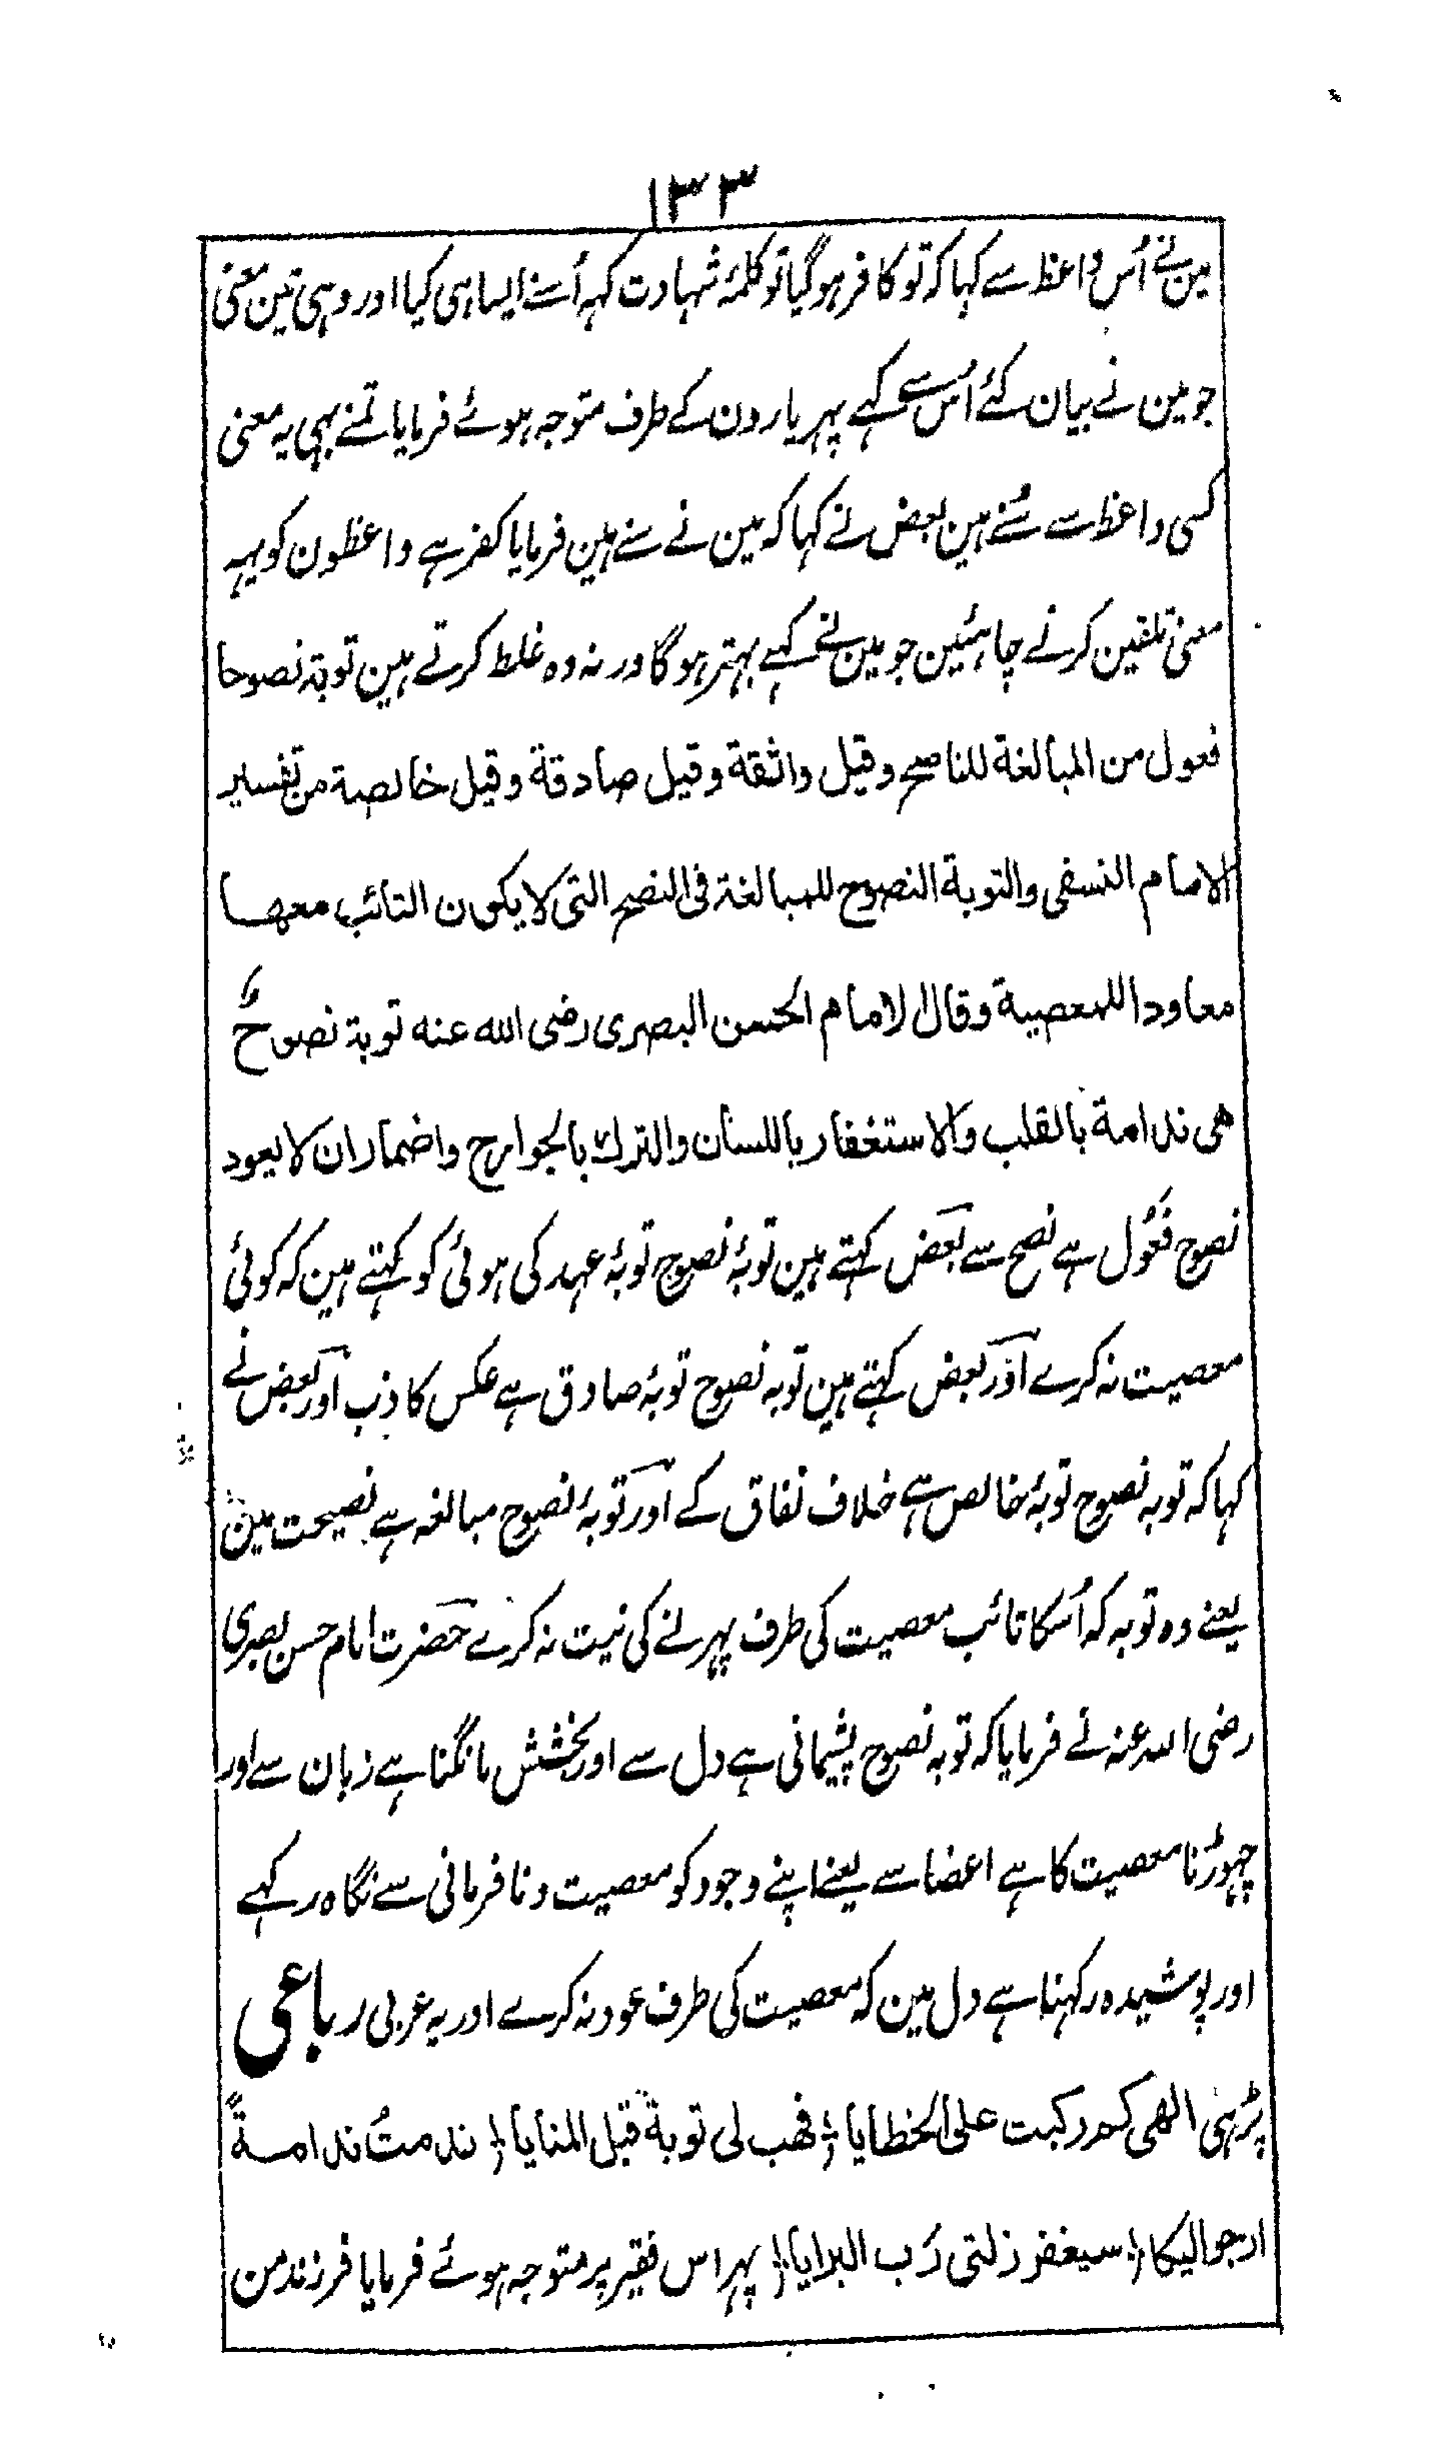 ۱۳۳
مین نے اُس واعظ سے کہا کہ تو کافر ہوگیا تو کلمۂ شہادت کہہ اُسنے ایسا ہی کیا اور وہی تین معنی
جو مین نے بیان کئے اُس سے کہے پہر یارون کے طرف متوجہ ہوئے فرمایا تمنے بہی یہ معنی
کسی واعظ سے سُنے ہین بعض نے کہا کہ مین نے سنے ہین فرمایا کفر ہے واعظون کو یہہ
معنی تلقین کرنے چاہئین جو مین نے کہے بہتر ہوگا ورنہ وہ غلط کرتے ہین توبۃ نصوحا
فعول من المبالغة للناصح وقیل واثقة وقیل صادقة وقیل خالصة من تفسیر
الامام النسفی والتوبة النصوح للمبالغة فی النصح التی لایکون التائب معها
معاودا للمعصیة وقال لامام الحسن البصری رضی الله عنه توبة نصوحٌ
هی ندامة بالقلب والاستغفار باللسان والترك بالجوارح واضمار ان لایعود
نصوح فعُول ہے نصح سے بعض کہتے ہین توبۂ نصوح توبۂ عہد کی ہوئی کو کہتے ہین کہ کوئی
معصیت نہ کرے اور بعض کہتے ہین توبہ نصوح توبۂ صادق ہے عکس کاذب اور بعض نے
کہا کہ توبہ نصوح توبۂ خالص ہے خلاف نفاق کے اور توبۂ نصوح مبالغہ ہے نصیحت مین
یعنے وہ توبہ کہ اُسکا تائب معصیت کی طرف پہرنے کی نیت نہ کرے حضرت امام حسن بصری
رضی اللہ عنہ نے فرمایا کہ توبہ نصوح پشیمانی ہے دل سے اور بخشش مانگنا ہے زبان سے اور
چہوڑنا معصیت کا ہے اعضا سے یعنے اپنے وجود کو معصیت و نافرمانی سے نگاہ رکہے
اور پوشیدہ رکہنا ہے دل مین کہ معصیت کی طرف عود نہ کرے اور یہ عربی رباعی
پڑہی الهی کم رکبت علی الخطایا ؛ فهب لی توبة قبل المنایا ؛ ندمتُ ندامـةً
ارجوالیکا ؛ سیغفر زلتی رَب البرایا ؛ پہر اس فقیر پر متوجہ ہوئے فرمایا فرزند من